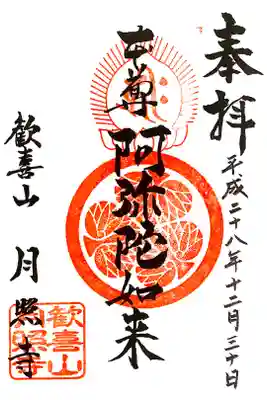 奉拝
平成二十八年十二月三十日
本尊 阿弥陀如来
歓喜山 月照寺
歓喜山
月照寺